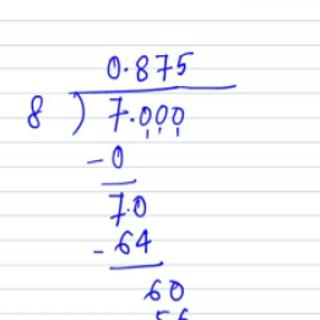 0.875
8 ) 7.000
-0
7.0
-64
60
56